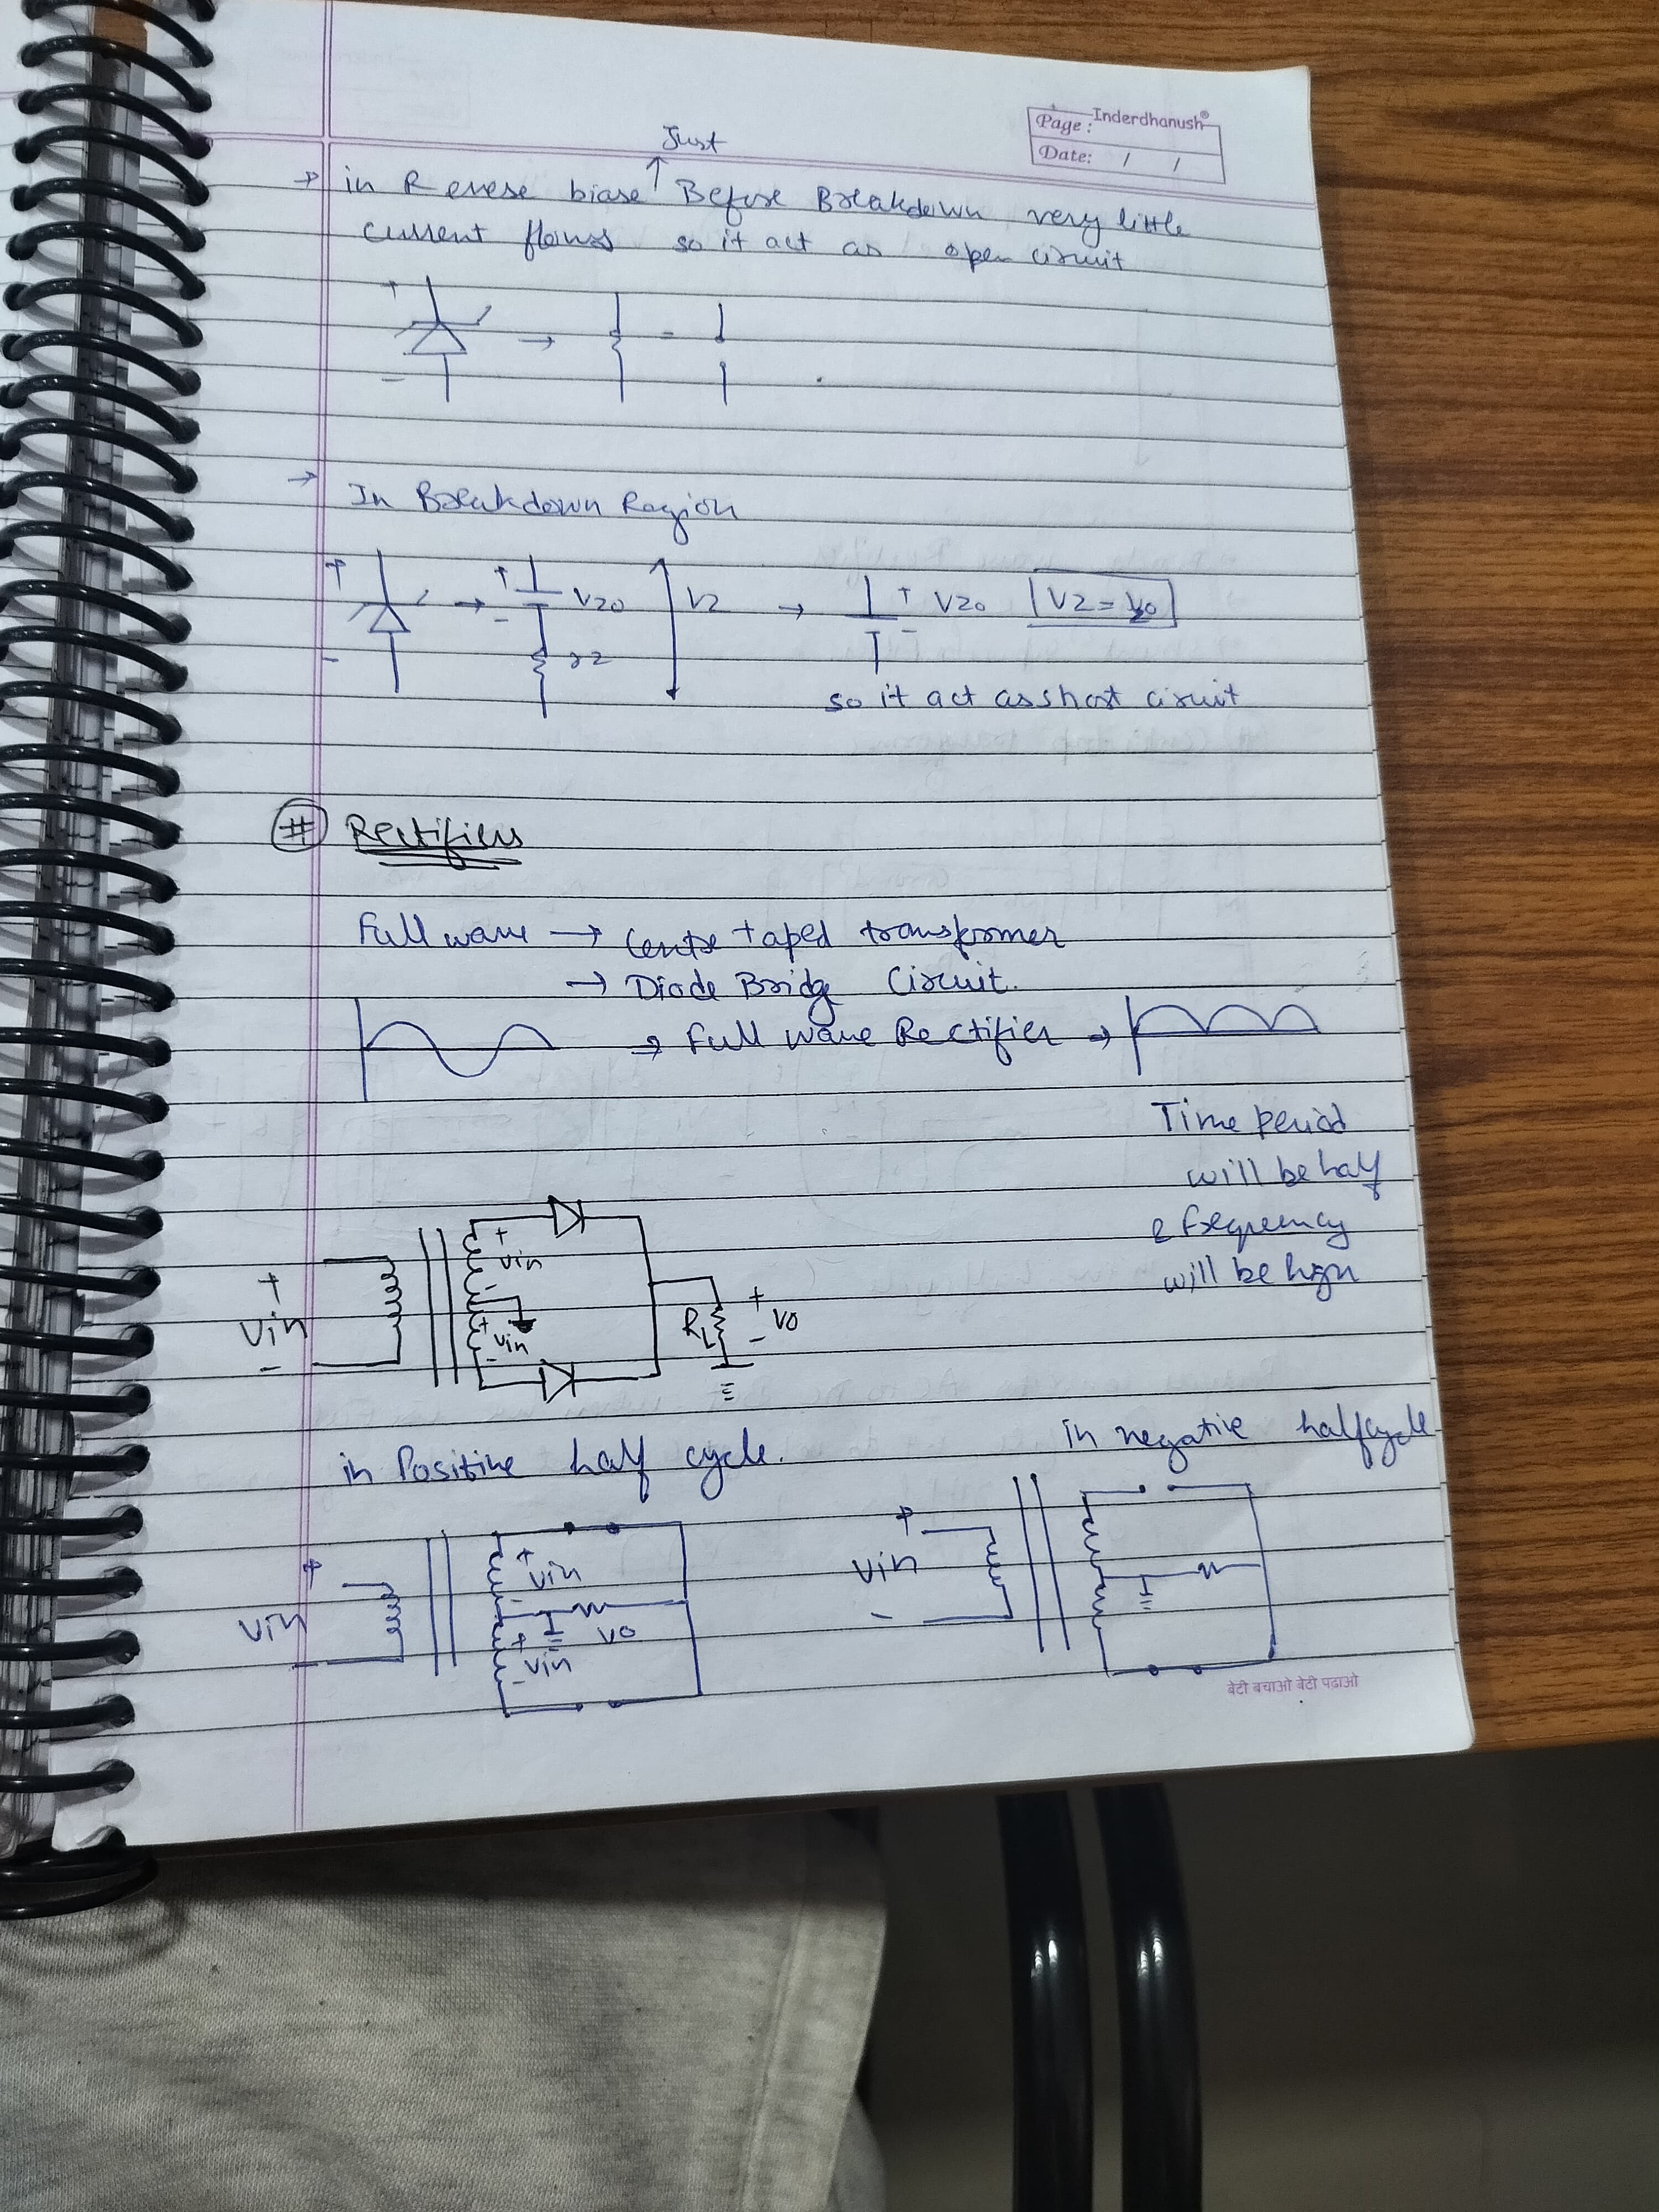 Inderdhanush®
Page:
Date: / /
Just
→ in Revese biase ↑ Before Breakdown very little
current flows so it act as open circuit
+ → = 
-
→ In Breakdown Region
+ → + Vzo Vz → + Vzo Vz = Vzo
- - rz -
so it act as short circuit
# Rectifiers
Full wave → Centre taped transformer
→ Diode Bridge Circuit.
→ Full wave Rectifier →
Time period
will be half
& frequency
will be high
+ Vin -
+ Vin -
+ Vin -
RL + Vo -
in Positive half cycle.
in negative halfcycle
+ Vin
+ Vin -
Vo
+ Vin -
+ Vin -
बेटी बचाओ बेटी पढ़ाओ